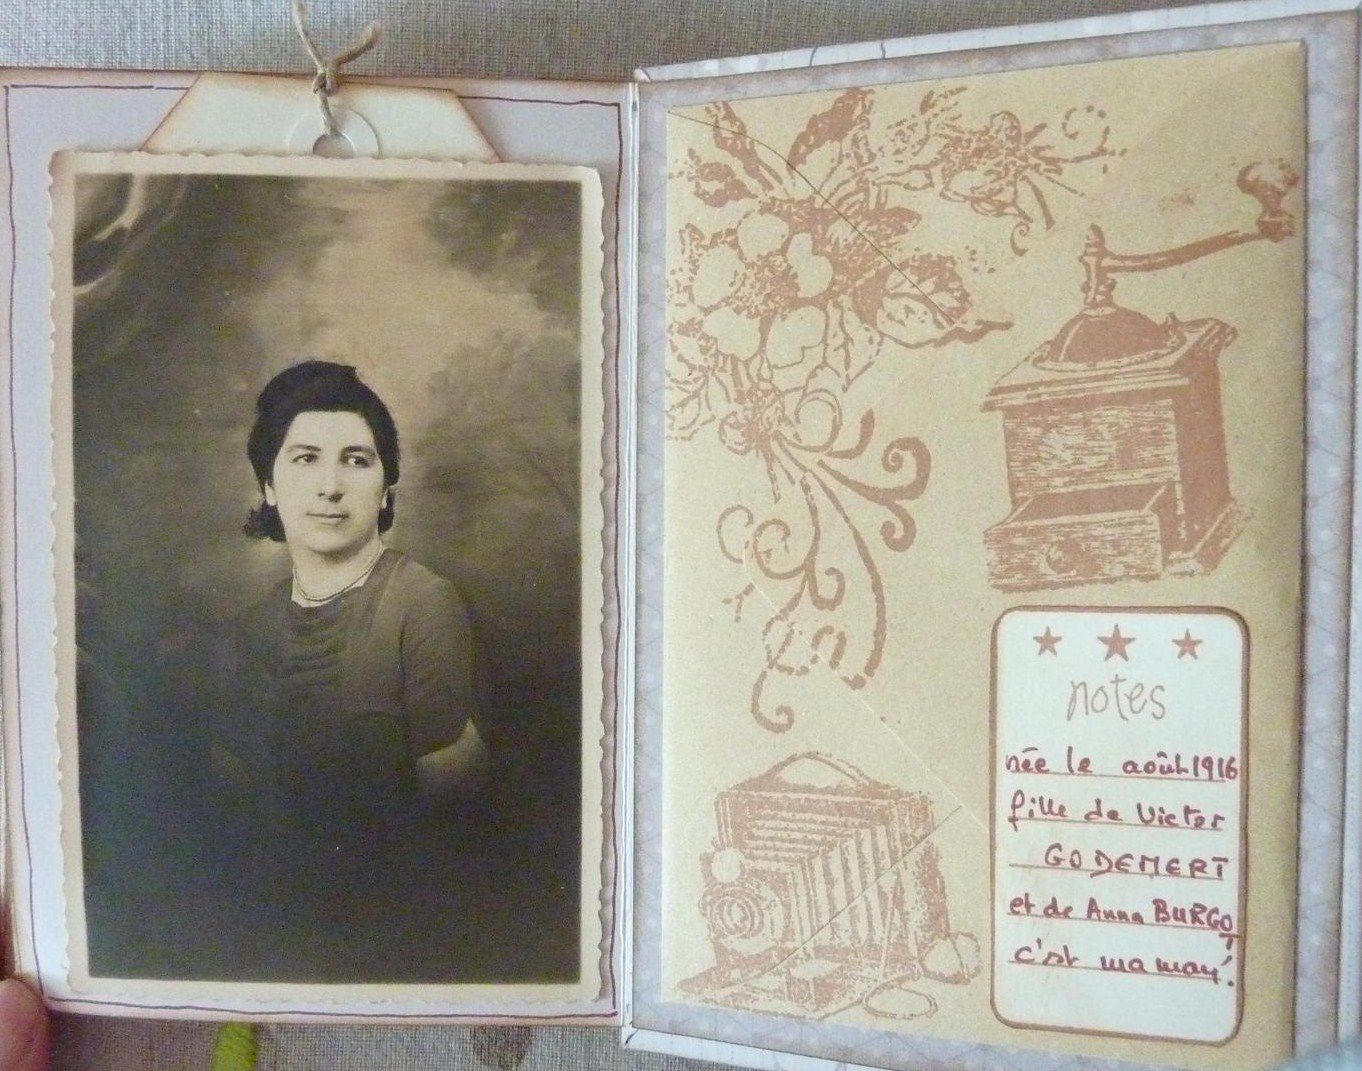 notes
née le août 1916
fille de Victor
GODEMERT
et de Anna BURGOT
c'est maman!